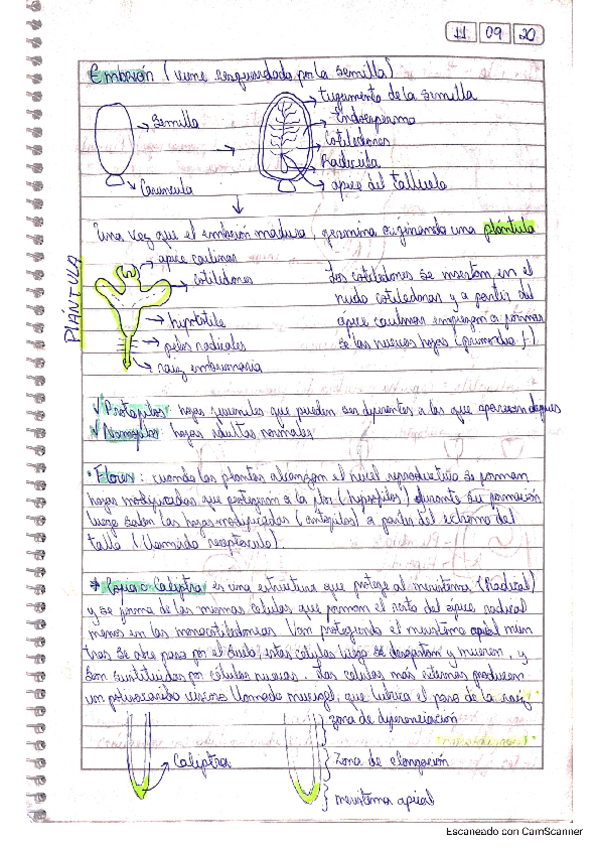 11 09 20
Embrión (viene resguardado por la semilla)
tegumento de la semilla
Semilla
Endosperma
Cotiledones
Radicula
Caruncula
apice del talluelo
Una vez que el embrión madura, germina originando una plántula
PLÁNTULA
apice caulinar
cotiledones
hipocotile
pelos radicales
raiz embrionaria
Los cotiledones se insertan en el
nudo cotiledonar y a partir del
ápice caulinar empiezan a formar
se las nuevas hojas (primordio f.)
√ Protofilos: hojas juveniles que pueden ser diferentes a las que aparecen despues
√ Nomofilos: hojas adultas normales
• Flores: cuando las plantas alcanzan el nivel reproductivo se forman
hojas modificadas que protegeran a la flor (hipsofilos) durante su formación
luego salen las hojas modificadas (antofilos) a partir del extremo del
tallo (llamado receptaculo).
→ Cofia o Caliptra: es una estructura que protege al meristema (Radical)
y se forma de las mismas celulas que forman el resto del ápice radical
menos en las monocotiledoneas. Van protegiendo el meristema apical mien
tras se abre paso por el suelo, estas células luego se desgastan y mueren, y
son sustituidas por células nuevas. Las celulas más externas producen
un polisacarido viscoso llamado mucigel, que lubrica el paso de la raiz
zona de diferenciación
Caliptra
Zona de elongación
meristema apical
Escaneado con CamScanner